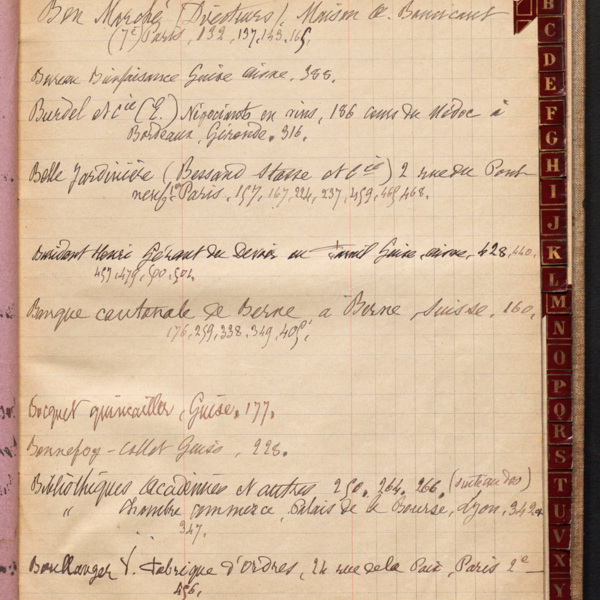 Bon Marché (Directeurs), Maison A. Boucicaut
(7e) Paris, 132, 137, 143, 165,
Bureau Bienfaisance Guise Aisne, 388.
Burdel et Cie (E.) Négociants en vins, 186 cours du Médoc à
Bordeaux, Gironde, 316.
Belle Jardinière (Bessand Stasse et Cie) 2 rue du Pont-
neuf, Paris, 157, 167, 224, 237, 459, 465, 468.
Buridant Henri Gérant du Devoir au Famil Guise, Aisne, 428, 440,
457, 479, 500, 504
Banque cantonale de Berne à Berne, Suisse, 160,
176, 259, 338, 349, 405,
Bocquet quincailler, Guise, 177.
Bonnefoy-Collet Guise, 228.
Bibliothèques Académies et autres 250, 264, 266,
" Chambre commerce, Palais de la Bourse, Lyon, 342
347.
Boullanger V. Fabrique d'Ordres, 24 rue de la Paix, Paris 2e
456.
B
C
D
E
F
G
H
I
J
K
L
M
N
O
P
Q
R
S
T
U
V
X
Y